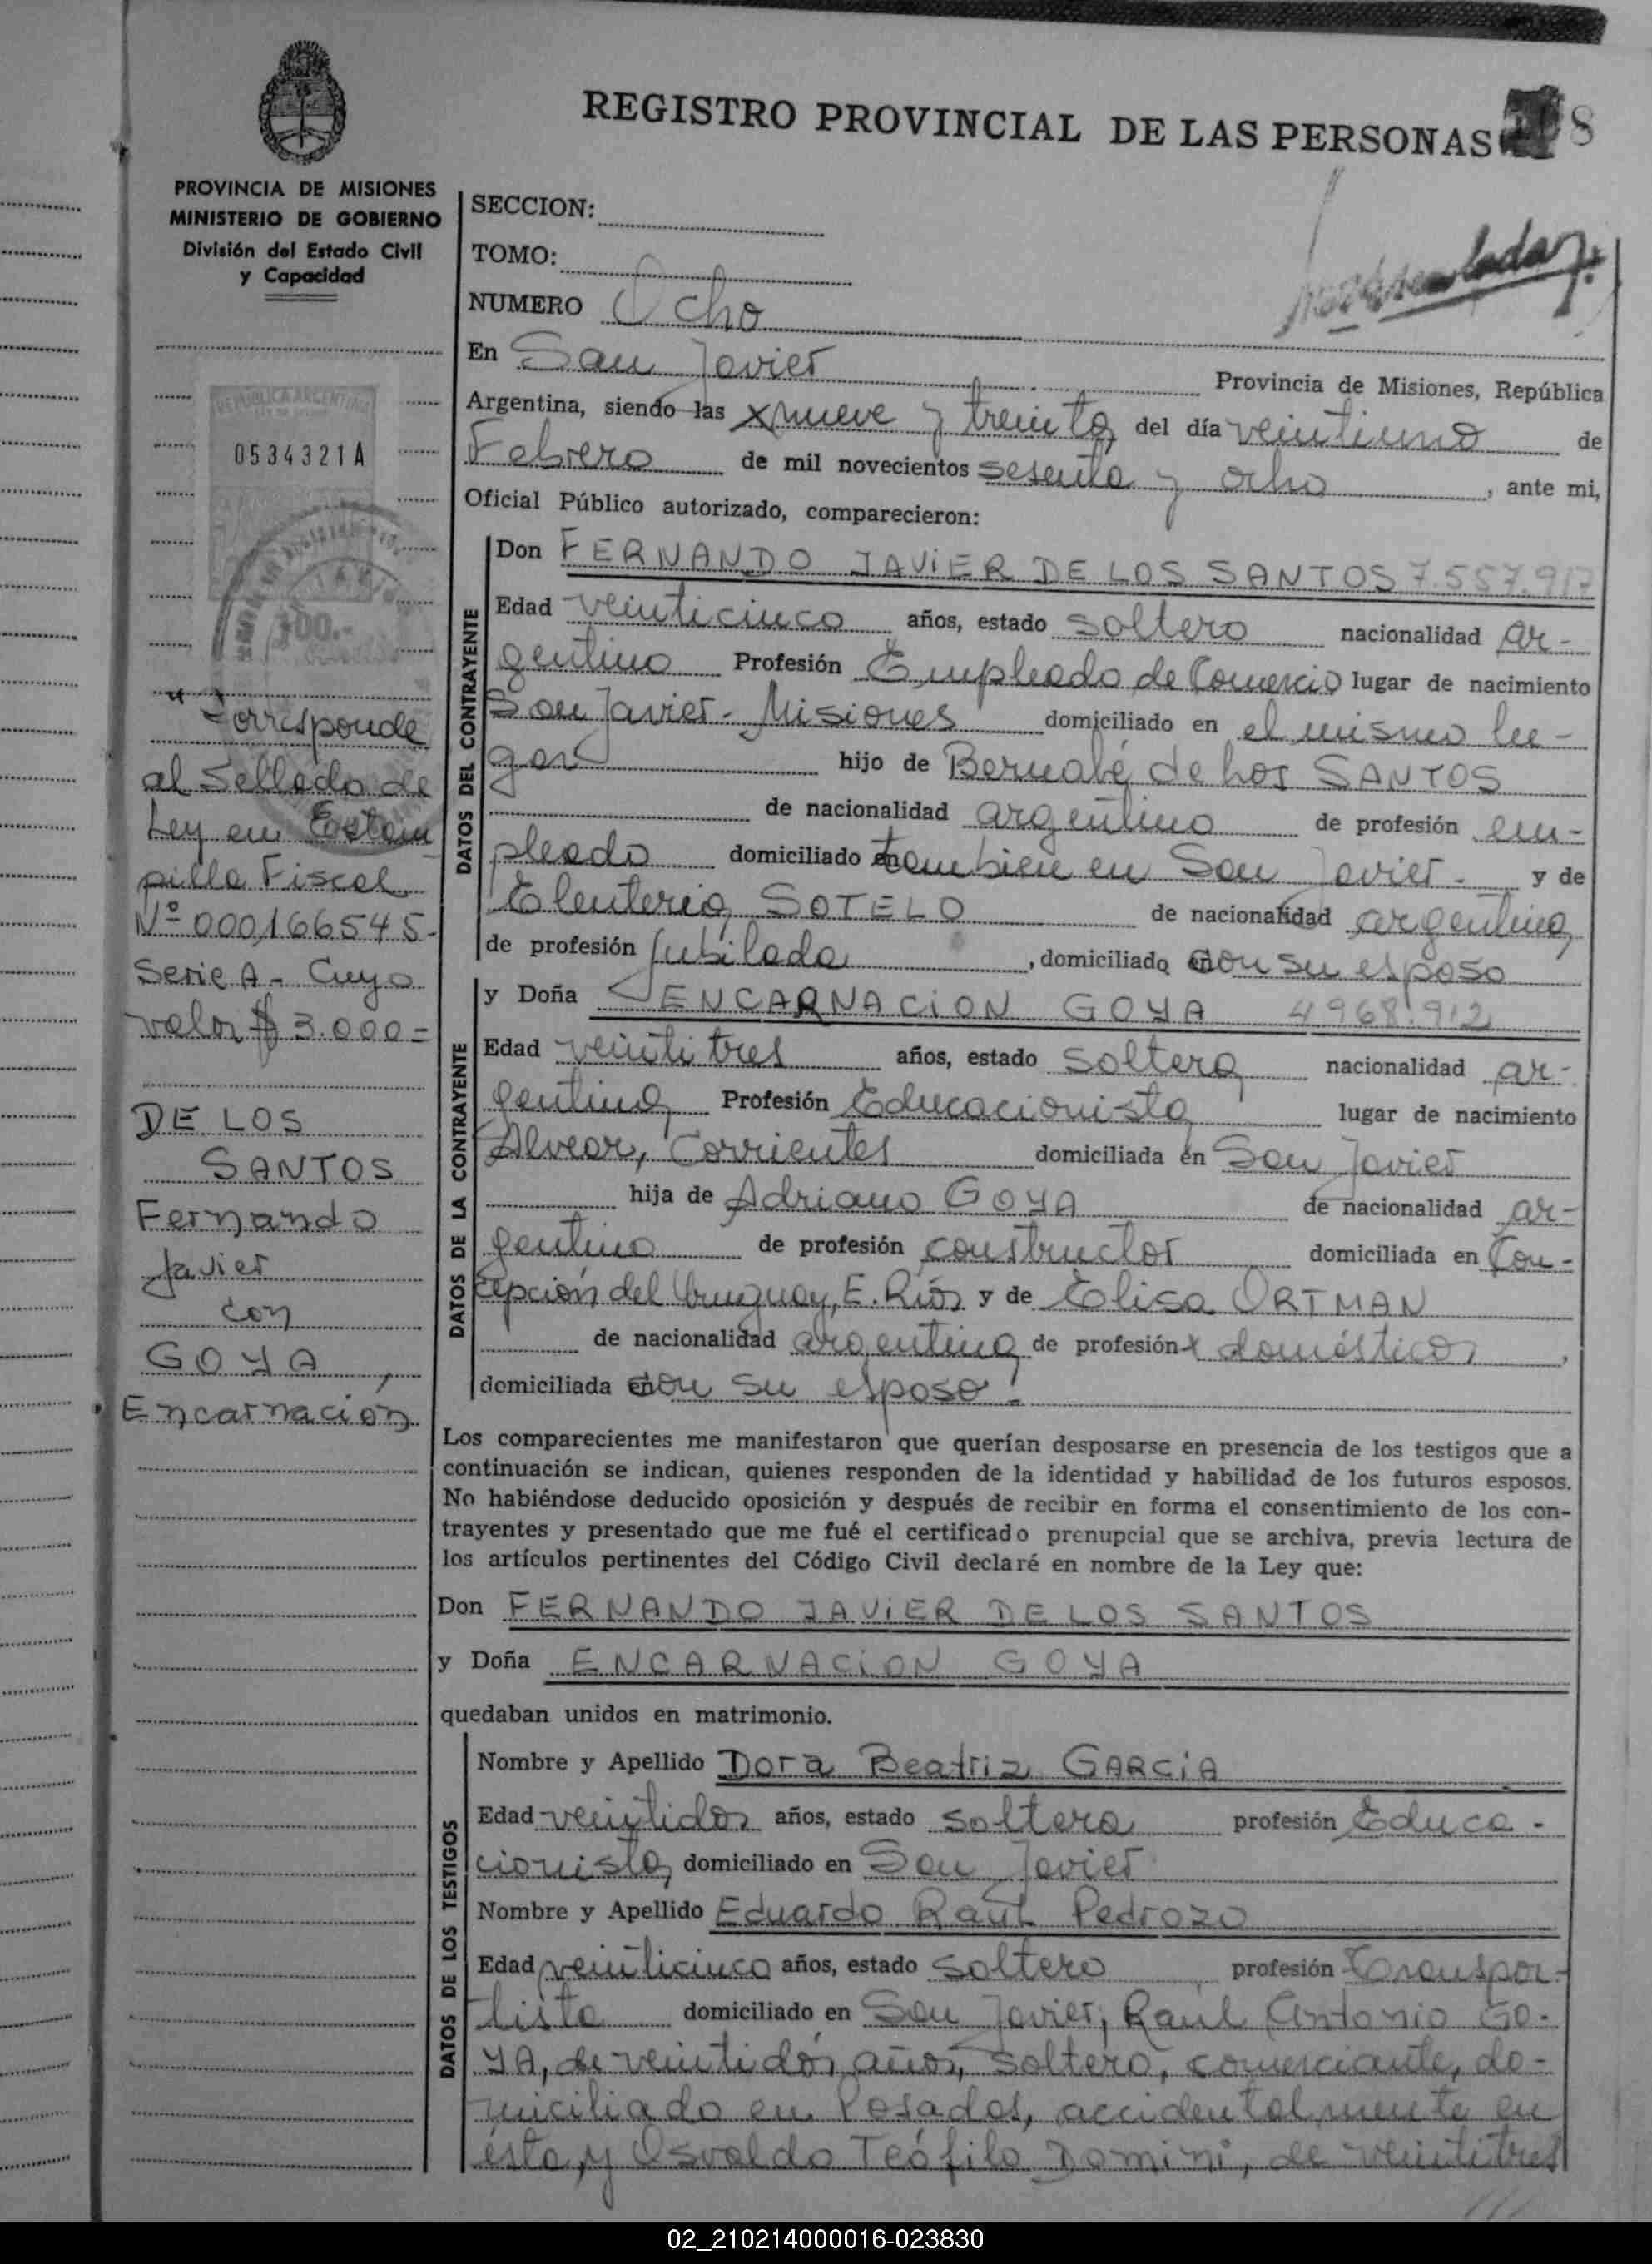 REGISTRO PROVINCIAL DE LAS PERSONAS 8
PROVINCIA DE MISIONES
MINISTERIO DE GOBIERNO
División del Estado Civil
y Capacidad
SECCION:
TOMO:
NUMERO Ocho
En San Javier Provincia de Misiones, República
Argentina, siendo las x nueve y treinta del día veintiuno de
Febrero de mil novecientos sesenta y ocho, ante mi,
Oficial Público autorizado, comparecieron:
REPUBLICA ARGENTINA
0534321A
100.-
x Corresponde
al Sellado de
Ley en Estam
pilla Fiscal
Nº 000,166545-
Serie A - Cuyo
valor $ 3.000=
DE LOS
SANTOS
Fernando
Javier
con
GOYA,
Encarnación
DATOS DEL CONTRAYENTE
Don FERNANDO JAVIER DE LOS SANTOS 7.557.917
Edad veinticinco años, estado soltero nacionalidad ar-
gentino Profesión Empleado de Comercio lugar de nacimiento
San Javier - Misiones domiciliado en el mismo lu-
gar hijo de Bernabé de los SANTOS
de nacionalidad argentino de profesión em-
pleado domiciliado también en San Javier - y de
Eleuteria SOTELO de nacionalidad argentina
de profesión Jubilada, domiciliado con su esposo
DATOS DE LA CONTRAYENTE
y Doña ENCARNACION GOYA 4968.912
Edad veintitres años, estado soltera nacionalidad ar-
gentina Profesión Educacionista lugar de nacimiento
Alvear, Corrientes domiciliada en San Javier
hija de Adriano GOYA de nacionalidad ar-
gentino de profesión constructor domiciliada en Con-
cepción del Uruguay, E. Ríos y de Elisa ORTMAN
de nacionalidad argentina de profesión x domésticos,
domiciliada con su esposo.
Los comparecientes me manifestaron que querían desposarse en presencia de los testigos que a
continuación se indican, quienes responden de la identidad y habilidad de los futuros esposos.
No habiéndose deducido oposición y después de recibir en forma el consentimiento de los con-
trayentes y presentado que me fué el certificado prenupcial que se archiva, previa lectura de
los artículos pertinentes del Código Civil declaré en nombre de la Ley que:
Don FERNANDO JAVIER DE LOS SANTOS
y Doña ENCARNACION GOYA
quedaban unidos en matrimonio.
DATOS DE LOS TESTIGOS
Nombre y Apellido Dora Beatriz GARCIA
Edad veintidos años, estado soltera profesión Educa-
cionista domiciliado en San Javier
Nombre y Apellido Eduardo Raúl Pedrozo
Edad veinticinco años, estado soltero profesión Transpor-
tista domiciliado en San Javier, Raúl Antonio GO-
YA, de veintidós años, soltero, comerciante, do-
miciliado en Posadas, accidentalmente en
ésta, y Osvaldo Teófilo Domini, de veintitres
02_210214000016-023830